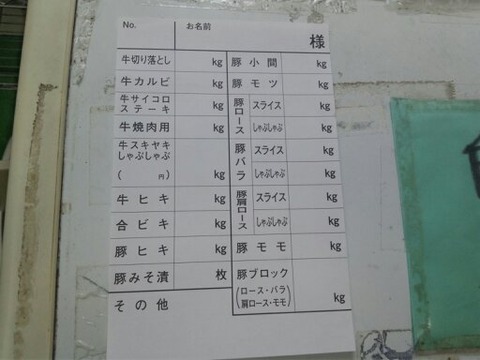 No.
お名前
様
牛切り落とし kg
牛カルビ kg
牛サイコロ
ステーキ kg
牛焼肉用 kg
牛スキヤキ
しゃぶしゃぶ
( 円) kg
牛ヒキ kg
合ビキ kg
豚ヒキ kg
豚みそ漬 枚
その他
豚小間 kg
豚モツ kg
豚ロース
スライス kg
しゃぶしゃぶ kg
豚バラ
スライス kg
しゃぶしゃぶ kg
豚肩ロース
スライス kg
しゃぶしゃぶ kg
豚モモ kg
豚ブロック
(ロース・バラ
肩ロース・モモ) kg